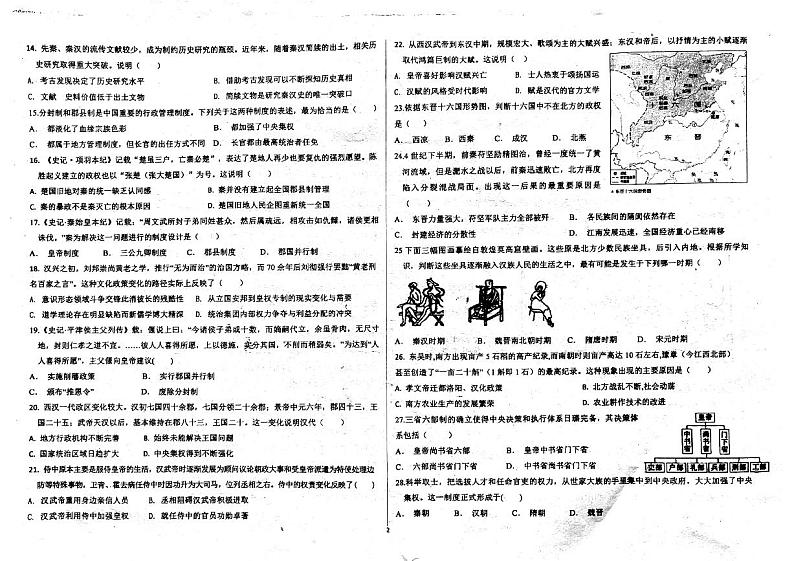 14. 先秦、秦汉的流传文献较少,成为制约历史研究的瓶颈。近年来,随着秦汉简牍的出土,相关历
史研究取得重大突破。说明( )
A. 考古发现决定了历史研究水平 B. 借助考古发现可以不断探知历史真相
C. 文献 史料价值低于出土文物 D. 简牍文物是研究秦汉历史的唯一突破口
15.分封制和郡县制是中国重要的行政管理制度。下列关于这两种制度的表述,最为恰当的是( )
A. 都强化了血缘宗族色彩 B. 都加强了中央集权
C. 都属于地方管理制度,但长官的出任方式不同 D. 长官都由最高统治者任免
16. 《史记·项羽本纪》记载“楚虽三户,亡秦必楚”,表达了楚地人再少也要复仇的强烈愿望。陈
胜起义建立的政权也以“张楚(张大楚国)”为号。这说明( )
A. 楚国旧地对秦的统一缺乏认同感 B. 秦并没有建立起全国郡县制管理
C. 秦的暴政不是秦灭亡的根本原因 D. 楚国旧地人民企图重新统一全国
17.《史记·秦始皇本纪》记载:“周文武所封子弟同姓甚众,然后属疏远,相攻击如仇雠,诸侯更相
诛伐。”秦为解决这一问题进行的制度设计是( )
A. 皇帝制度 B. 三公九卿制度 C. 郡县制度 D. 郡国并行制
18. 汉兴之初,刘邦崇尚黄老之学,推行“无为而治”的治国方略,而 70 余年后刘彻强行罢黜“黄老刑
名百家之言”。这种文化政策变化的路径实际上反映了( )
A. 意识形态领域斗争交锋过当波长的残酷性 B. 从立国安邦到皇权专制的现实变化与需要
C. 道学理论存在明显缺陷而新儒学博大精深 D. 统治集团内部权力争夺与利益分配的冲突
19. 《史记·平津侯主父列传》载,偃说上曰:“今诸侯子弟或十数,而嫡嗣代立,余虽骨肉,无尺寸
地,封则仁孝之道不宣。……彼人人喜得所愿,上以德施,实分其国,不削而稍弱矣。”为达到“人
人喜得所愿”,主父偃向皇帝建议( )
A. 实施削藩政策 B. 实行郡国并行制
C. 颁布“推恩令” D. 设置郡县制度
20. 西汉一代政区变化较大。汉初七国四十余郡,七国分领二十余郡;景帝中元六年,郡四十三,王国二
十五;武帝天汉以后,基本维持在郡八十三,王国二十。这一变化说明汉代( )
A. 地方行政机构不断完善 B. 始终未能解决王国问题
C. 国家统治区域日益扩大 D. 中央集权制度不断加强
21. 侍中原本主要是服侍皇帝的生活,汉武帝时逐渐发展为顾问议论朝政大事和受皇帝派遣为特使处理边
防等特殊事物,卫青、霍去病任侍中时因功升为大司马,位列丞相之右。侍中的权责变化反映了( )
A. 汉武帝重用身边亲信人员 B. 丞相阻碍汉武帝积极进取
C. 汉武帝利用侍中加强皇权 D. 就任侍中的官员功勋卓著
22. 从西汉武帝到东汉中期,规模宏大、歌颂为主的大赋兴盛;东汉和帝后,以抒情为主的小赋逐渐
取代鸿篇巨制的大赋。这说明( )
A. 皇帝喜好影响汉赋兴亡 B. 士人热衷于颂扬国运
C. 汉赋的风格受时代影响 D. 赋是汉代的官方文学
23.依据东晋十六国形势图,判断十六国中不在北方的政权
是( )
A. 西凉 B. 西秦 C. 成汉 D. 北燕
24.4 世纪下半期,前秦苻坚励精图治,曾经一度统一了黄
河流域,但是淝水之战以后,前秦迅速败亡,北方再度
陷入分裂混战局面。出现这一后果的最重要原因是
( )
A. 东晋力量强大,苻坚军队主力全部被歼 B. 各民族间的隔阂依然存在
C. 封建经济的分散性 D. 江南发展迅速,全国经济重心已经南移
东 晋
25 下面三幅图画摹绘自敦煌莫高窟壁画。这些原是北方少数民族坐具,后引入内地。根据所学知
识,判断这些坐具逐渐融入汉族人民的生活之中,最有可能是发生于下列哪一时期( )
A. 秦汉时期 B. 魏晋南北朝时期 C. 隋唐时期 D. 宋元时期
26. 东吴时,南方出现亩产 5 石稻的高产纪录,而南朝时则亩产高达 10 石左右,豫章(今江西北部)
甚至创造了“一亩二十斛”(1 斛即 1 石)的最高纪录。这种现象出现的主要原因是( )
A. 孝文帝迁都洛阳、汉化政策 B. 北方战乱不断,社会动荡
C. 南方农业生产的发展繁荣 D. 农业耕作技术的改进
27.三省六部制的确立使得中央决策和执行体系日臻完备,其决策体
系包括( )
A. 皇帝尚书省六部 B. 皇帝中书省门下省
C. 六部尚书省门下省 D. 中书省尚书省门下省
皇帝
中书省 尚书省 门下省
吏部 户部 礼部 兵部 刑部 工部
28.科举取士,把选拔人才和任命官吏的权力,从世家大族的手里集中到中央政府,大大加强了中央
集权。这一制度正式形成于( )
A. 秦朝 B. 汉朝 C. 隋朝 D. 魏晋
2